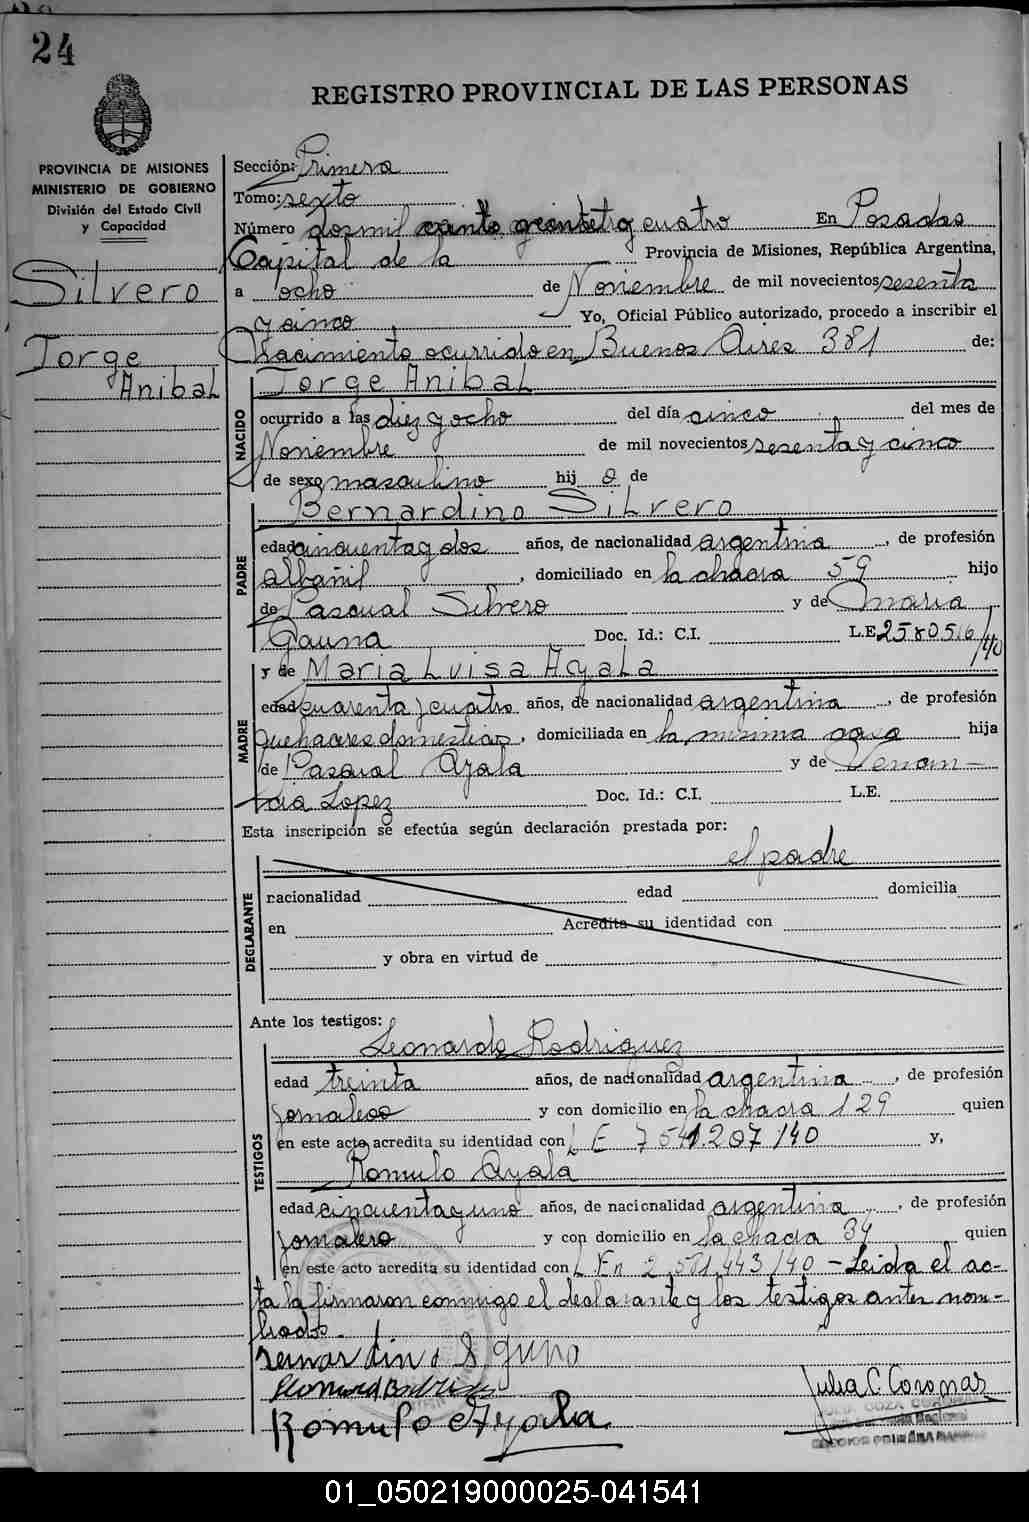 24
REGISTRO PROVINCIAL DE LAS PERSONAS
PROVINCIA DE MISIONES
MINISTERIO DE GOBIERNO
División del Estado Civil
y Capacidad
Silvero
Jorge
Anibal
Sección: Primera
Tomo: sexto
Número dosmil ciento treinta y cuatro En Posadas
Capital de la Provincia de Misiones, República Argentina,
a ocho de Noviembre de mil novecientos sesenta
y cinco Yo, Oficial Público autorizado, procedo a inscribir el
Nacimiento ocurrido en Buenos Aires 381 de:
NACIDO
Jorge Anibal
ocurrido a las diez y ocho del día cinco del mes de
Noviembre de mil novecientos sesenta y cinco
de sexo masculino hij o de
PADRE
Bernardino Silvero
edad cincuenta y dos años, de nacionalidad argentina, de profesión
albañil, domiciliado en la chacra 59 hijo
de Pascual Silvero y de Maria
Gauna Doc. Id.: C.I. L.E. 2580516/40
MADRE
y de Maria Luisa Ayala
edad cuarenta y cuatro años, de nacionalidad argentina, de profesión
quehaceres domesticos, domiciliada en la misma casa hija
de Pascual Ayala y de Venan-
cia Lopez Doc. Id.: C.I. L.E.
Esta inscripción se efectúa según declaración prestada por:
el padre
DECLARANTE
nacionalidad edad domicilia
en Acredita su identidad con
y obra en virtud de
Ante los testigos:
TESTIGOS
Leonardo Rodriguez
edad treinta años, de nacionalidad argentina, de profesión
jornalero y con domicilio en la chacra 129 quien
en este acto acredita su identidad con L E 7541.207/40 y,
Romulo Ayala
edad cincuenta y uno años, de nacionalidad argentina, de profesión
jornalero y con domicilio en la chacra 34 quien
en este acto acredita su identidad con L En 2.581.443/40 - Leida el ac-
ta la firmaron conmigo el declarante y los testigos antes nom-
brados.-
Romulo Ayala
Julia C. Coromas
01_050219000025-041541